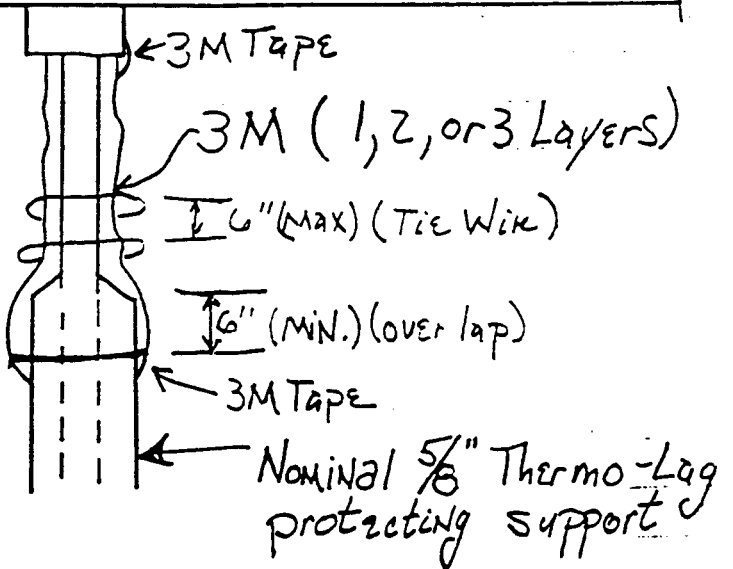 3M Tape
3M (1,2, or 3 Layers)
6" (Max) (Tie Wire)
6" (MIN.) (over lap)
3M Tape
Nominal 5/8" Thermo-Lag
protecting support